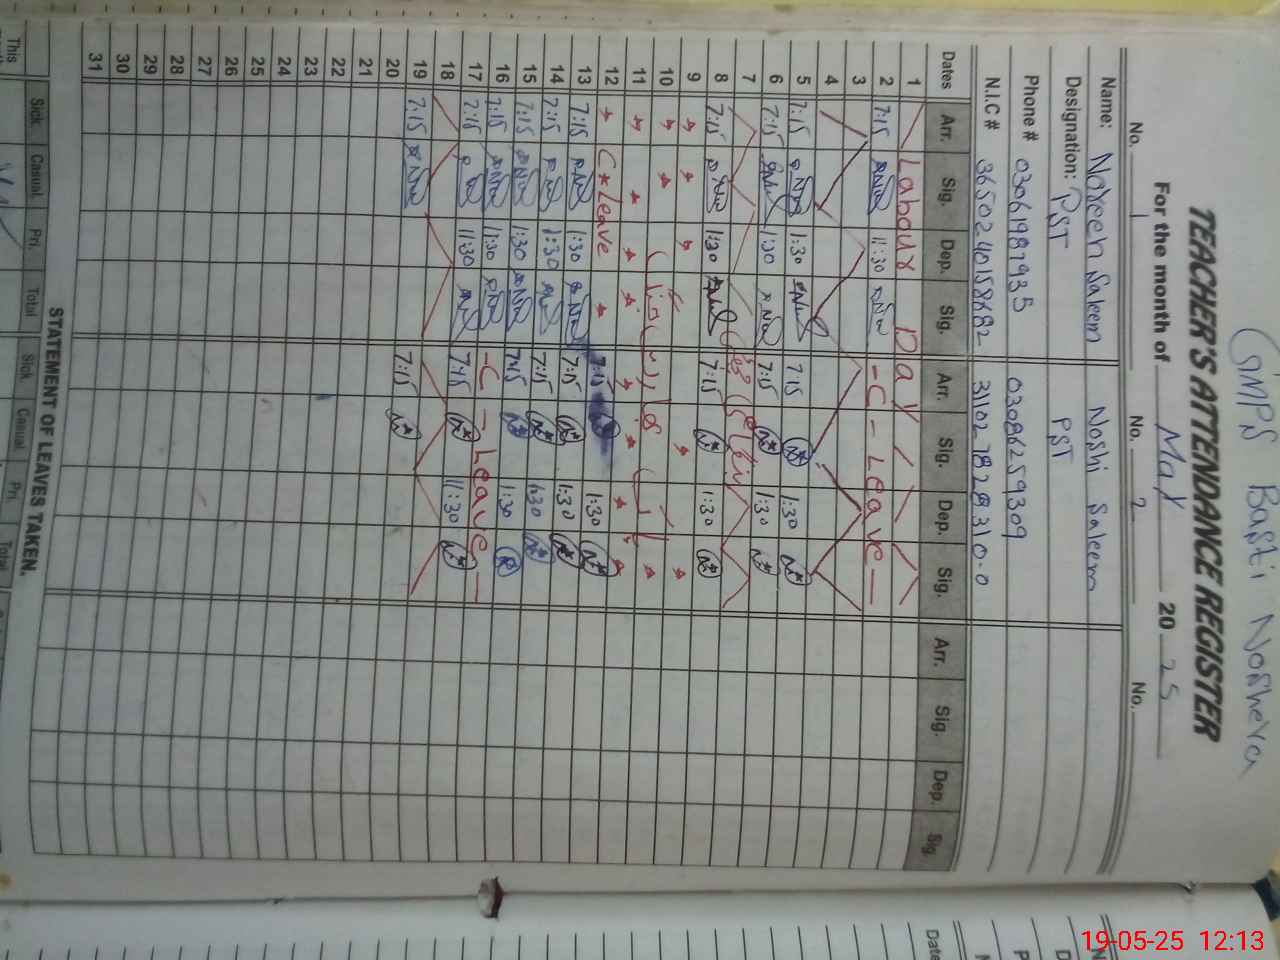 GMPS Basti Noshera
TEACHER'S ATTENDANCE REGISTER
For the month of May 2025
No. 1 No. 2 No.
Name: Noreen Saleem Noshi Saleem
Designation: PST PST
Phone # 03061987935 03086259309
N.I.C # 3650240158682 3110278283310-0
Dates Arr. Sig. Dep. Sig. Arr. Sig. Dep. Sig. Arr. Sig. Dep. Sig.
1 Labour Day
2 7:15 11:30 - C - Leave -
3
4
5 7:15 1:30 7:15 1:30
6 7:15 1:30 7:15 1:30
7
8 7:15 1:30 7:15 1:30
9
10
11
12 C*Leave 7:15 1:30
13 7:15 1:30 7:15 1:30
14 7:15 1:30 7:15 1:30
15 7:15 1:30 7:15 1:30
16 7:15 1:30 - C - Leave -
17 7:15 11:30 7:15 11:30
18
19 7:15 7:15
20
21
22
23
24
25
26
27
28
29
30
31
STATEMENT OF LEAVES TAKEN.
Sick Casual Pri. Total Sick Casual Pri. Total
This
Date
19-05-25 12:13